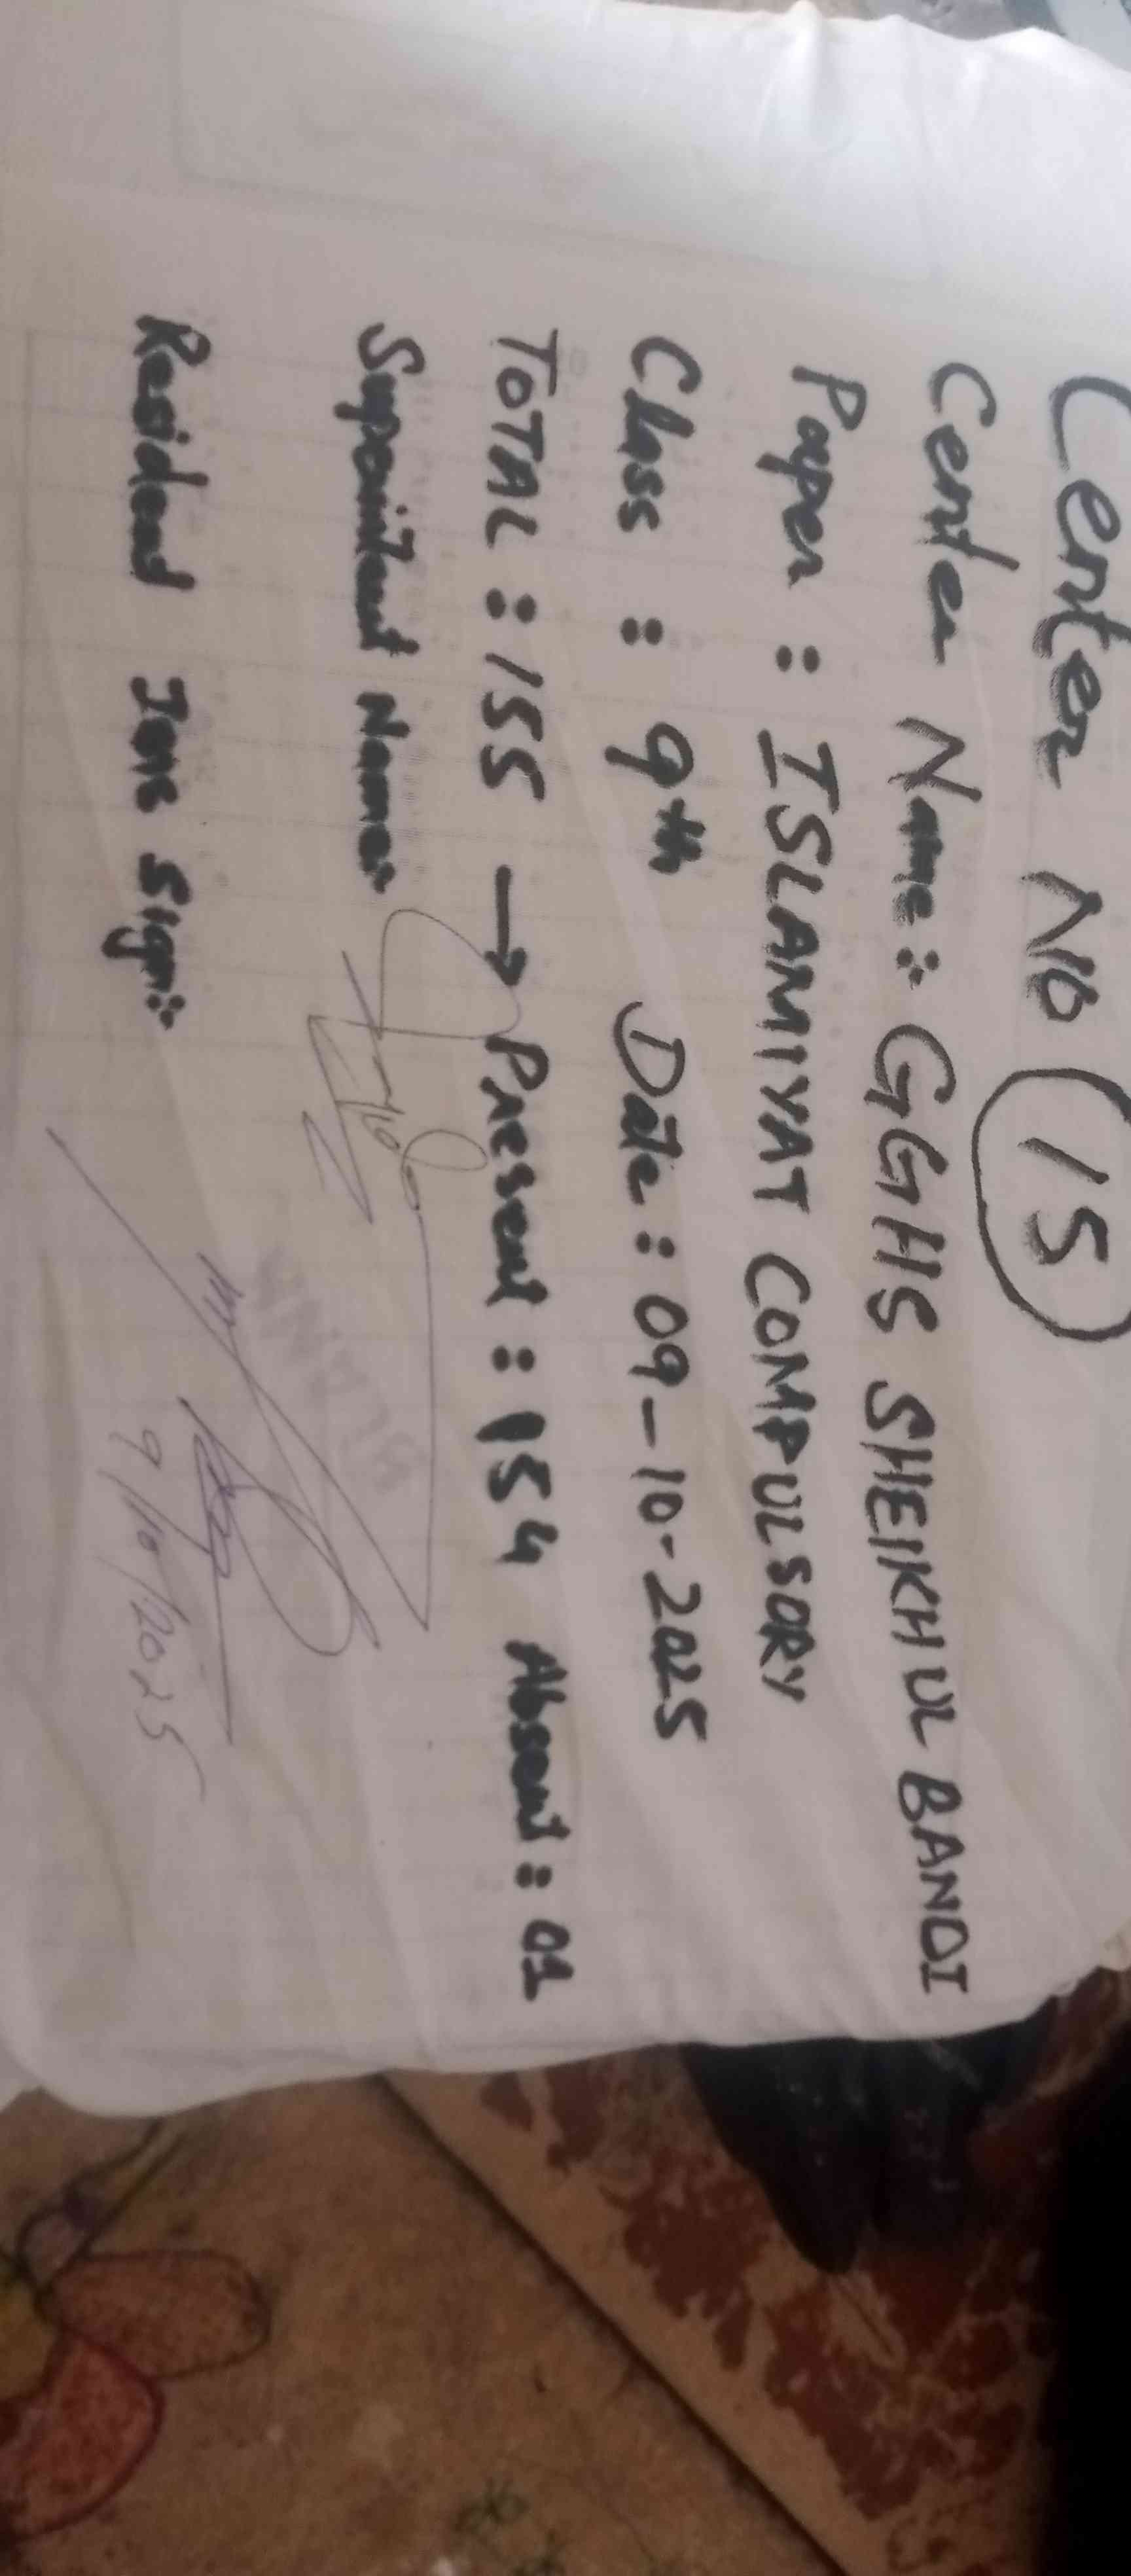 Center No 15
Center Name: GGHS SHEIKHUL BANDI
Paper : ISLAMIYAT COMPULSORY
Class : 9th Date : 09-10-2025
TOTAL : 155 → Present : 154 Absent : 01
Supernitent Name:
Resident Ins Sign:
9/10/2025